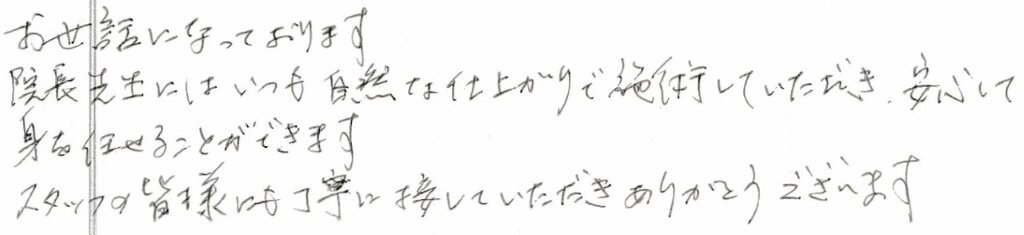 お世話になっております
院長先生にはいつも自然な仕上がりで施術していただき、安心して
身を任せることができます
スタッフの皆様にも丁寧に接していただきありがとうございます